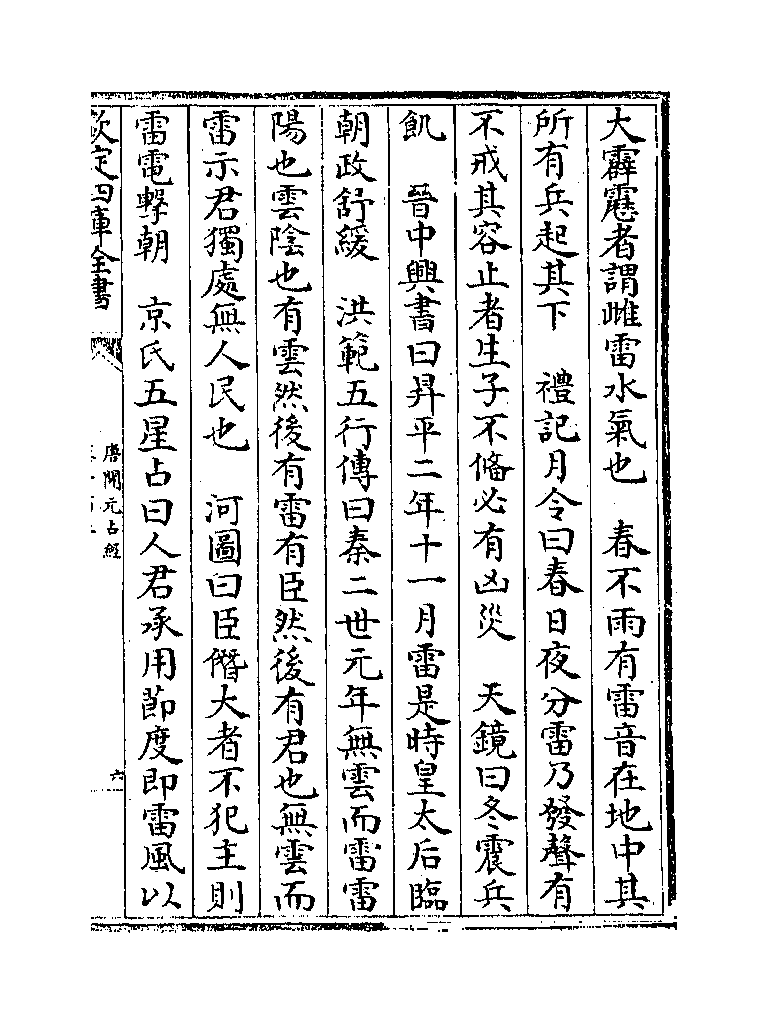 大霹靂者謂雌雷水氣也　春不雨有雷音在地中其
所有兵起其下　禮記月令曰春日夜分雷乃發聲有
不戒其容止者生子不俻必有凶災　天鏡曰冬震兵
飢　晉中興書曰昇平二年十一月雷是時皇太后臨
朝政舒緩　洪範五行傳曰秦二世元年無雲而雷雷
陽也雲陰也有雲然後有雷有臣然後有君也無雲而
雷示君獨處無人民也　河圖曰臣僭大者不犯主則
雷電擊朝　京氏五星占曰人君承用節度即雷風以
欽定四庫全書
唐開元占經
六